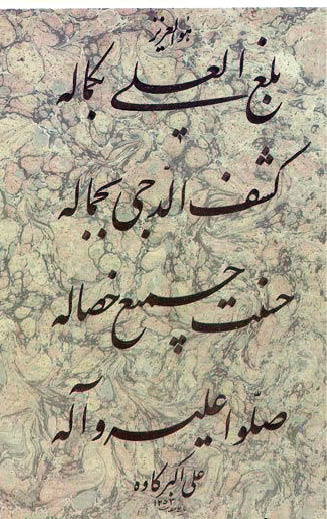 هوالعزیز
بلغ العلی بکماله
کشف الدجی بجماله
حسنت جمیع خصاله
صلّوا علیه و آله
علی اکبر کاوه